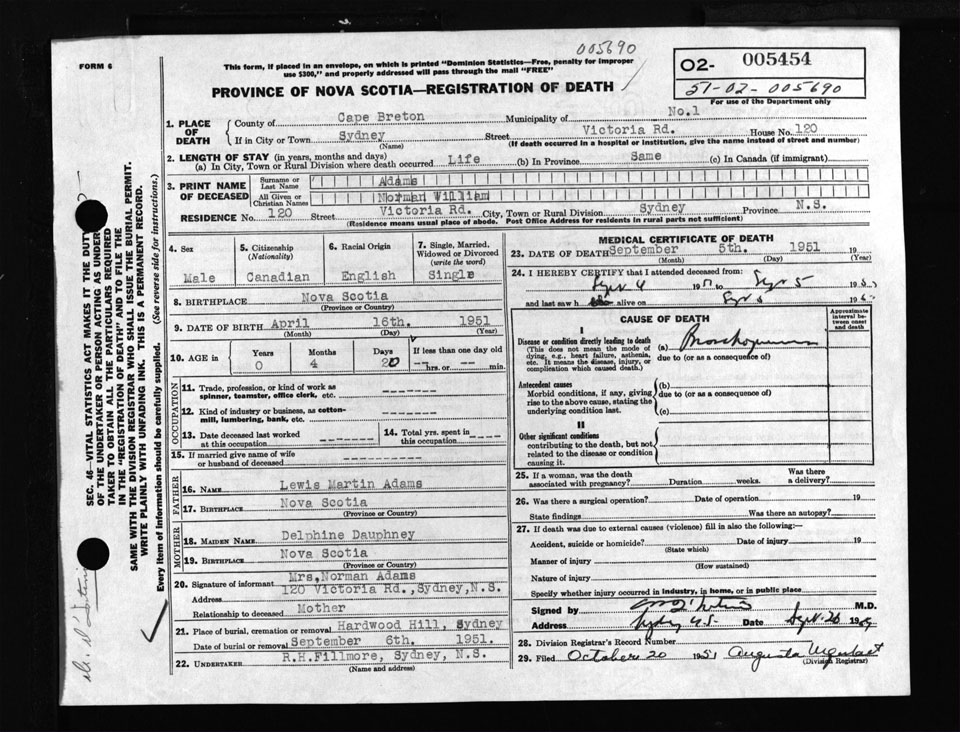 005690
FORM 6
This form, if placed in an envelope, on which is printed "Dominion Statistics—Free, penalty for improper
use $300," and properly addressed will pass through the mail "FREE"
02- 005454
51-02-005690
For use of the Department only
PROVINCE OF NOVA SCOTIA—REGISTRATION OF DEATH
1. PLACE OF DEATH County of Cape Breton Municipality of No.1
If in City or Town Sydney Street Victoria Rd. House No. 120
(Name) (If death occurred in a hospital or institution, give the name instead of street and number)
2. LENGTH OF STAY (in years, months and days)
(a) In City, Town or Rural Division where death occurred Life (b) In Province Same (c) In Canada (if immigrant)
3. PRINT NAME OF DECEASED Surname or Last Name Adams
All Given or Christian Names Norman William
RESIDENCE No. 120 Street Victoria Rd. City, Town or Rural Division Sydney Province N.S.
(Residence means usual place of abode. Post Office Address for residents in rural parts not sufficient)
4. Sex Male
5. Citizenship (Nationality) Canadian
6. Racial Origin English
7. Single, Married, Widowed or Divorced (write the word) Single
8. BIRTHPLACE Nova Scotia
(Province or Country)
9. DATE OF BIRTH April 16th. 1951
(Month) (Day) (Year)
10. AGE in Years Months Days If less than one day old
0 4 20 hrs. or min.
OCCUPATION
11. Trade, profession, or kind of work as spinner, teamster, office clerk, etc. -------
12. Kind of industry or business, as cotton-mill, lumbering, bank, etc. -------
13. Date deceased last worked at this occupation -------
14. Total yrs. spent in this occupation -----
15. If married give name of wife or husband of deceased
FATHER
16. NAME Lewis Martin Adams
17. BIRTHPLACE Nova Scotia
(Province or Country)
MOTHER
18. MAIDEN NAME Delphine Dauphney
19. BIRTHPLACE Nova Scotia
(Province or Country)
20. Signature of informant Mrs. Norman Adams
Address 120 Victoria Rd., Sydney, N.S.
Relationship to deceased Mother
21. Place of burial, cremation or removal Hardwood Hill, Sydney
Date of burial or removal September 6th. 1951.
22. UNDERTAKER R.H.Fillmore, Sydney, N.S.
(Name and address)
MEDICAL CERTIFICATE OF DEATH
23. DATE OF DEATH September 5th. 1951 19
(Month) (Day) (Year)
24. I HEREBY CERTIFY that I attended deceased from:
Sept 4 1951 to Sept 5 195
and last saw h alive on Sept 19
CAUSE OF DEATH
Approximate interval between onset and death
I
Disease or condition directly leading to death
(This does not mean the mode of dying, e.g., heart failure, asthenia, etc. It means the disease, injury, or complication which caused death.)
(a)
due to (or as a consequence of)
Antecedent causes
Morbid conditions, if any, giving rise to the above cause, stating the underlying condition last.
(b)
due to (or as a consequence of)
(c)
II
Other significant conditions
contributing to the death, but not related to the disease or condition causing it.
25. If a woman, was the death associated with pregnancy? Duration weeks. Was there a delivery?
26. Was there a surgical operation? Date of operation 19
State findings Was there an autopsy?
27. If death was due to external causes (violence) fill in also the following:—
Accident, suicide or homicide? Date of injury 19
(State which)
Manner of injury
(How sustained)
Nature of injury
Specify whether injury occurred in industry, in home, or in public place
Signed by M.D.
Address Sydney N.S. Date Sept. 26 19
28. Division Registrar's Record Number
29. Filed October 20 1951 Augusta
(Division Registrar)
SEC. 46 VITAL STATISTICS ACT MAKES IT THE DUTY
OF THE UNDERTAKER OR PERSON ACTING AS UNDER-
TAKER TO OBTAIN ALL THE PARTICULARS REQUIRED
IN THE "REGISTRATION OF DEATH" AND TO FILE THE
SAME WITH THE DIVISION REGISTRAR WHO SHALL ISSUE THE BURIAL PERMIT.
WRITE PLAINLY WITH UNFADING INK. THIS IS A PERMANENT RECORD.
Every item of information should be carefully supplied. (See reverse side for instructions.)